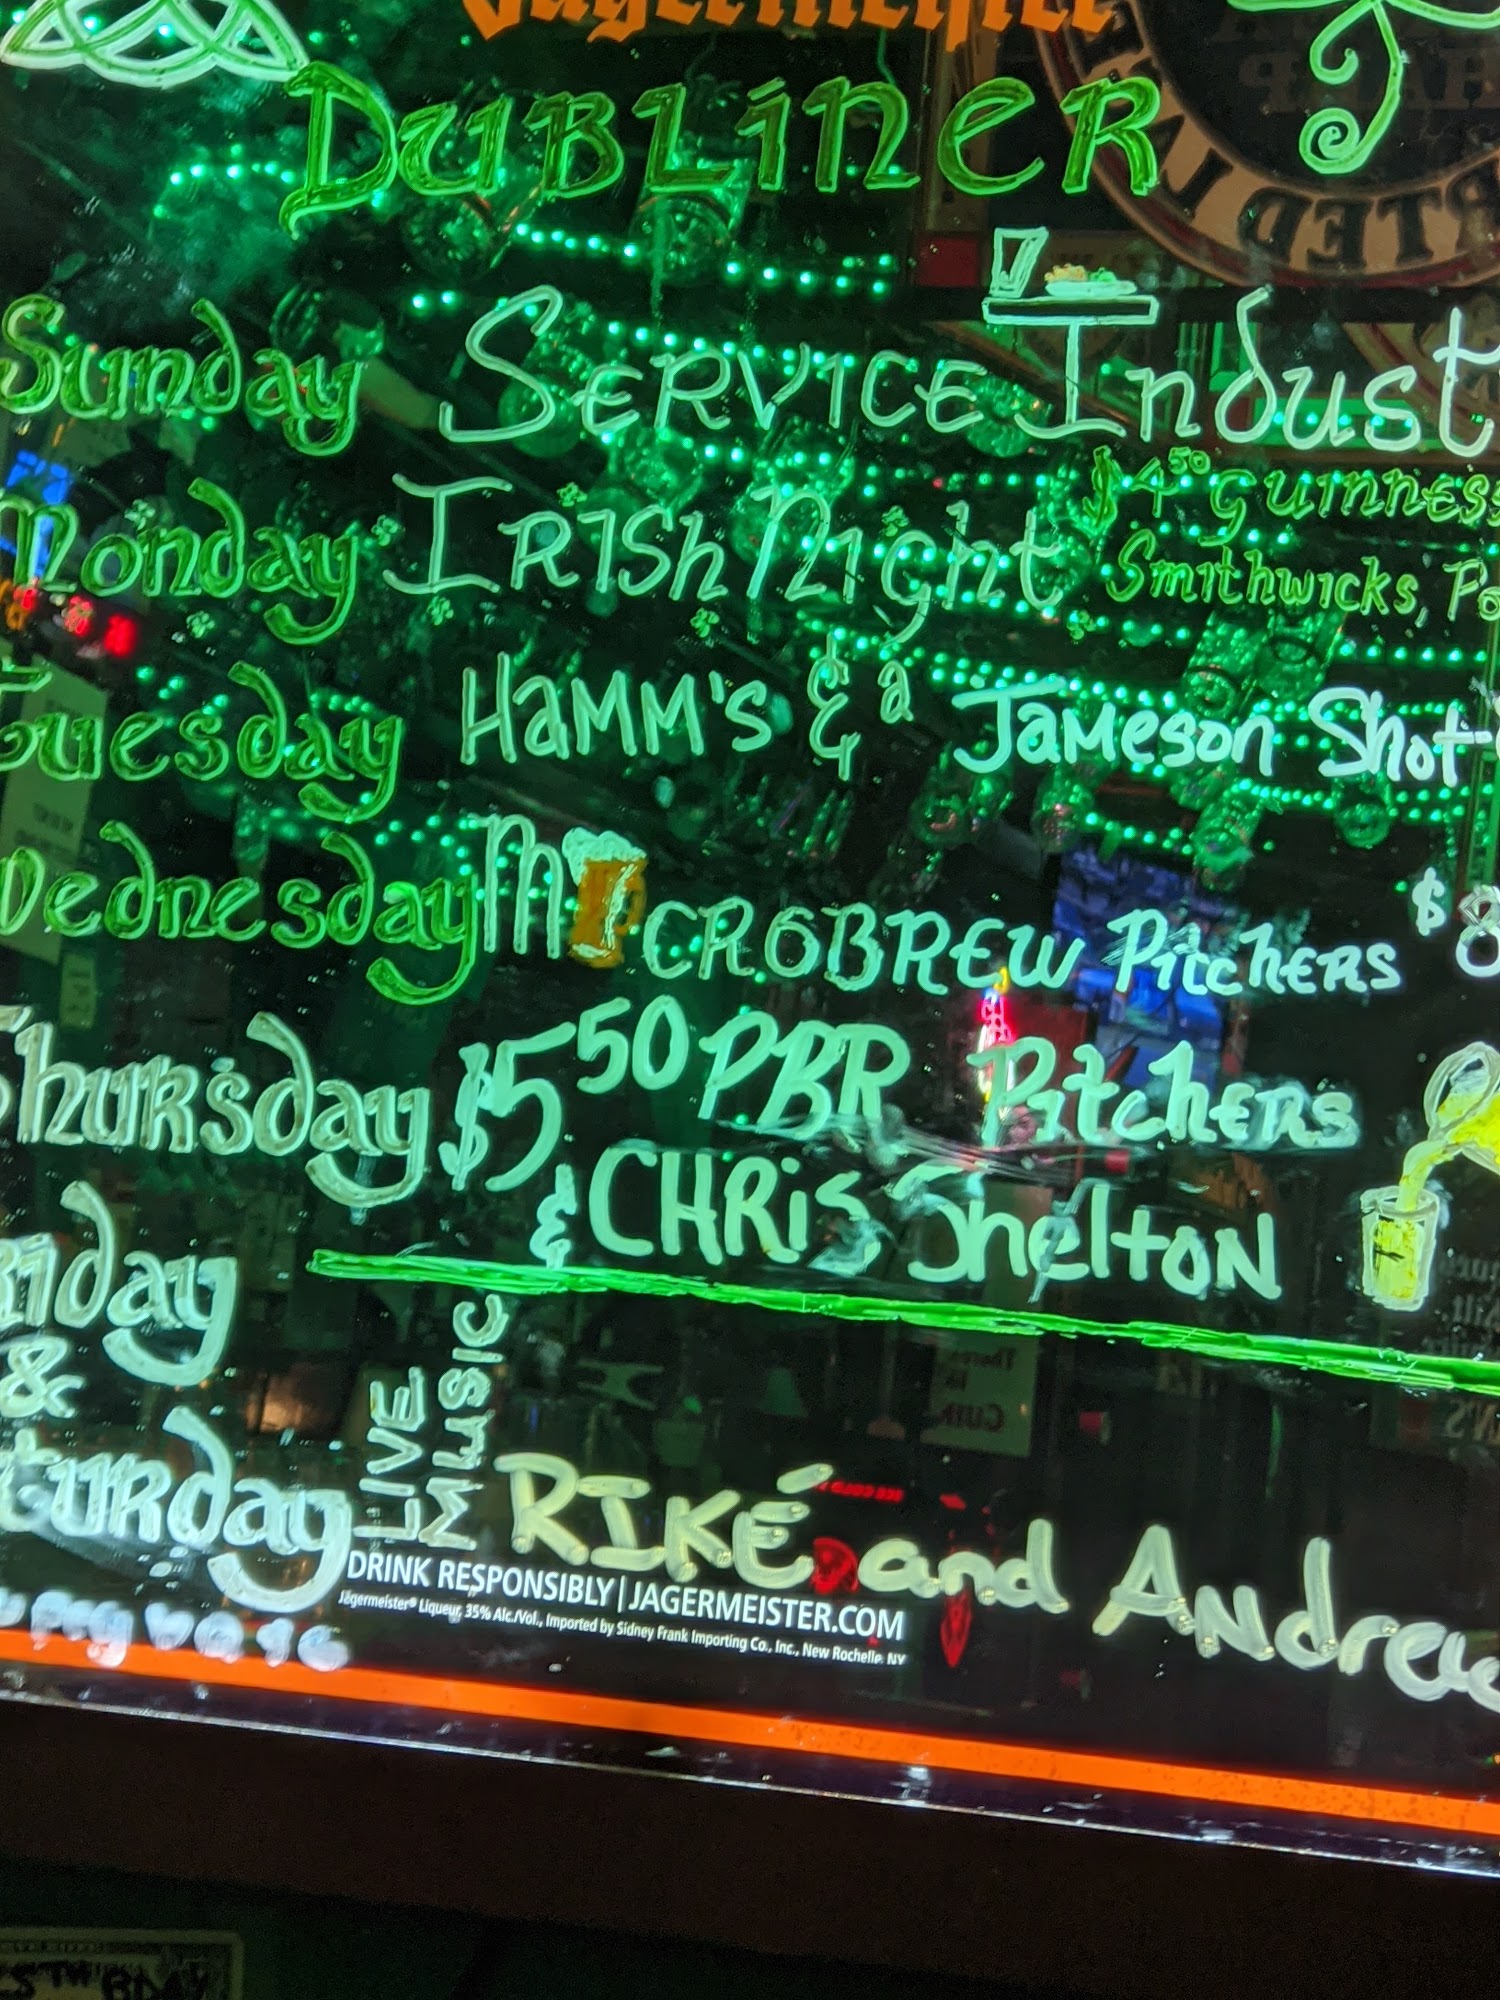 Jägermeister
DUBLINER
Sunday SERVICE Indust
Monday IRISh Night $4⁵⁰ GUINNESS
Smithwicks, Po
Tuesday Hamm's & a Jameson Shot
Wednesday MICROBREW Pitchers $8
Thursday $5⁵⁰ PBR Pitchers
& CHRis Shelton
riday
&
turday
LIVE
Music
RIKÉ and Andrew
DRINK RESPONSIBLY | JAGERMEISTER.COM
Jägermeister® Liqueur, 35% Alc./Vol., Imported by Sidney Frank Importing Co., Inc., New Rochelle, NY